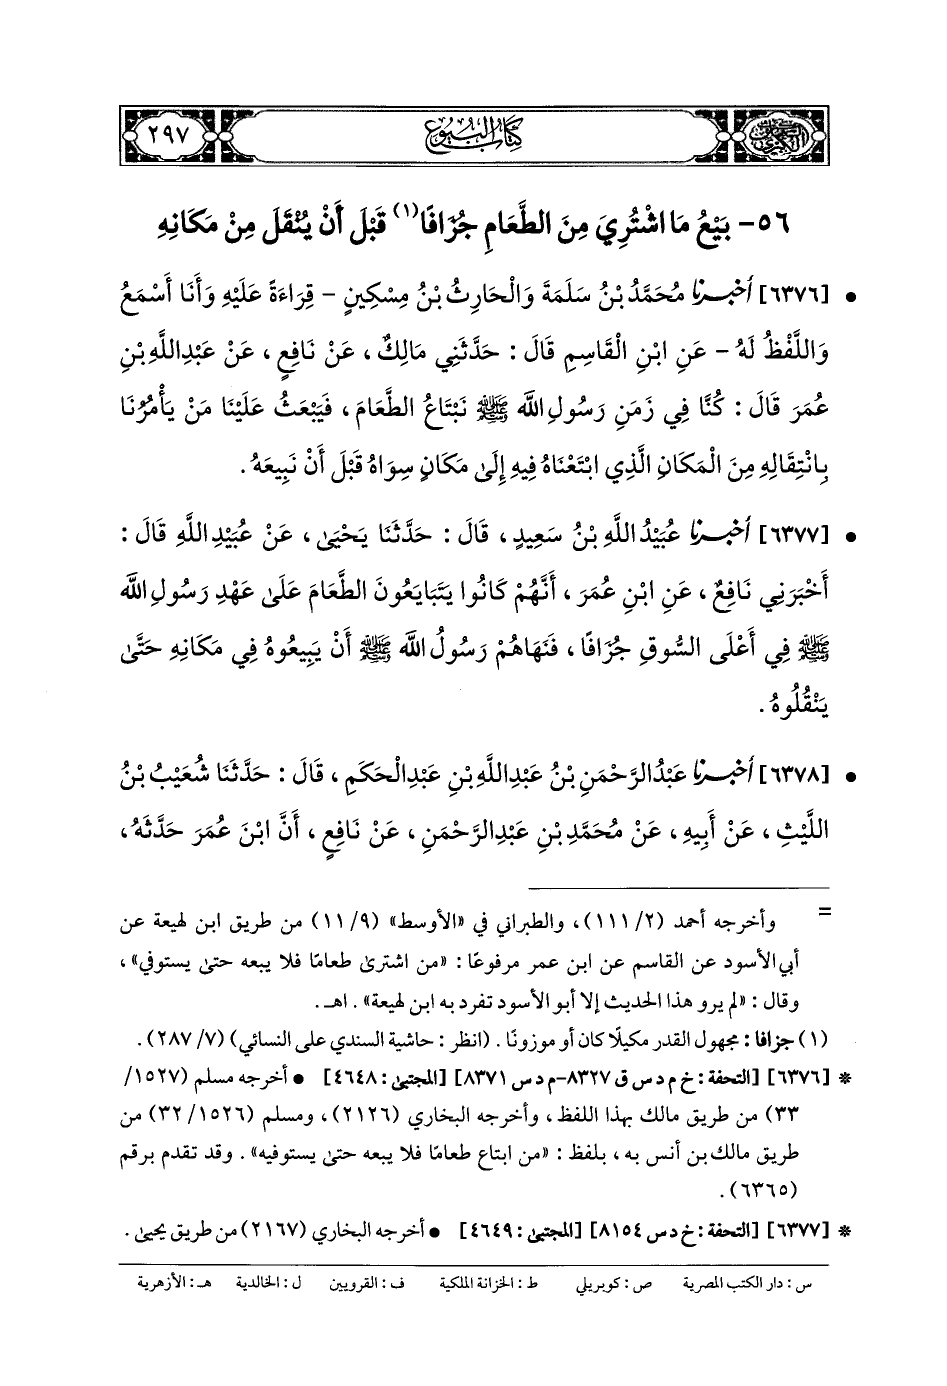 ٢٩٧
كتاب البيوع
السنن الكبرى
٥٦- بَيْعُ مَا اشْتُرِيَ مِنَ الطَّعَامِ جُزَافًا(١) قَبْلَ أَنْ يُنْقَلَ مِنْ مَكَانِهِ
• [٦٣٧٦] أَخْبَرَنَا مُحَمَّدُ بْنُ سَلَمَةَ وَالْحَارِثُ بْنُ مِسْكِينٍ - قِرَاءَةً عَلَيْهِ وَأَنَا أَسْمَعُ
وَاللَّفْظُ لَهُ - عَنِ ابْنِ الْقَاسِمِ قَالَ : حَدَّثَنِي مَالِكٌ ، عَنْ نَافِعٍ ، عَنْ عَبْدِاللَّهِ بْنِ
عُمَرَ قَالَ : كُنَّا فِي زَمَنِ رَسُولِ اللَّه ﷺ نَبْتَاعُ الطَّعَامَ ، فَيَبْعَثُ عَلَيْنَا مَنْ يَأْمُرُنَا
بِانْتِقَالِهِ مِنَ الْمَكَانِ الَّذِي ابْتَعْنَاهُ فِيهِ إِلَىٰ مَكَانٍ سِوَاهُ قَبْلَ أَنْ نَبِيعَهُ .
• [٦٣٧٧] أَخْبَرَنَا عُبَيْدُ اللَّهِ بْنُ سَعِيدٍ ، قَالَ : حَدَّثَنَا يَحْيَىٰ ، عَنْ عُبَيْدِ اللَّهِ قَالَ :
أَخْبَرَنِي نَافِعٌ ، عَنِ ابْنِ عُمَرَ ، أَنَّهُمْ كَانُوا يَتَبَايَعُونَ الطَّعَامَ عَلَىٰ عَهْدِ رَسُولِ اللَّه
ﷺ فِي أَعْلَى السُّوقِ جُزَافًا ، فَنَهَاهُمْ رَسُولُ اللَّه ﷺ أَنْ يَبِيعُوهُ فِي مَكَانِهِ حَتَّىٰ
يَنْقُلُوهُ .
• [٦٣٧٨] أَخْبَرَنَا عَبْدُ الرَّحْمَنِ بْنُ عَبْدِاللَّهِ بْنِ عَبْدِالْحَكَمِ ، قَالَ : حَدَّثَنَا شُعَيْبُ بْنُ
اللَّيْثِ ، عَنْ أَبِيهِ ، عَنْ مُحَمَّدِ بْنِ عَبْدِالرَّحْمَنِ ، عَنْ نَافِعٍ ، أَنَّ ابْنَ عُمَرَ حَدَّثَهُ ،
= وأخرجه أحمد (٢/ ١١١) ، والطبراني في «الأوسط» (٩/ ١١) من طريق ابن لهيعة عن
أبي الأسود عن القاسم عن ابن عمر مرفوعًا : «من اشترىٰ طعامًا فلا يبعه حتىٰ يستوفي» ،
وقال : «لم يرو هذا الحديث إلا أبو الأسود تفرد به ابن لهيعة» . اهـ.
(١) جزافا : مجهول القدر مكيلًا كان أو موزونًا . (انظر : حاشية السندي على النسائي) (٧/ ٢٨٧) .
* [٦٣٧٦] [التحفة : خ م د س ق ٨٣٢٧-م د س ٨٣٧١] [المجتبىٰ : ٤٦٤٨] • أخرجه مسلم (١٥٢٧/
٣٣) من طريق مالك بهذا اللفظ ، وأخرجه البخاري (٢١٢٦) ، ومسلم (١٥٢٦/ ٣٢) من
طريق مالك بن أنس به ، بلفظ : «من ابتاع طعامًا فلا يبعه حتىٰ يستوفيه» . وقد تقدم برقم
(٦٣٦٥) .
* [٦٣٧٧] [التحفة : خ د س ٨١٥٤] [المجتبىٰ : ٤٦٤٩] • أخرجه البخاري (٢١٦٧) من طريق يحيىٰ .
س : دار الكتب المصرية ص : كوبريلي ط : الخزانة الملكية ف : القرويين ل : الخالدية هـ : الأزهرية